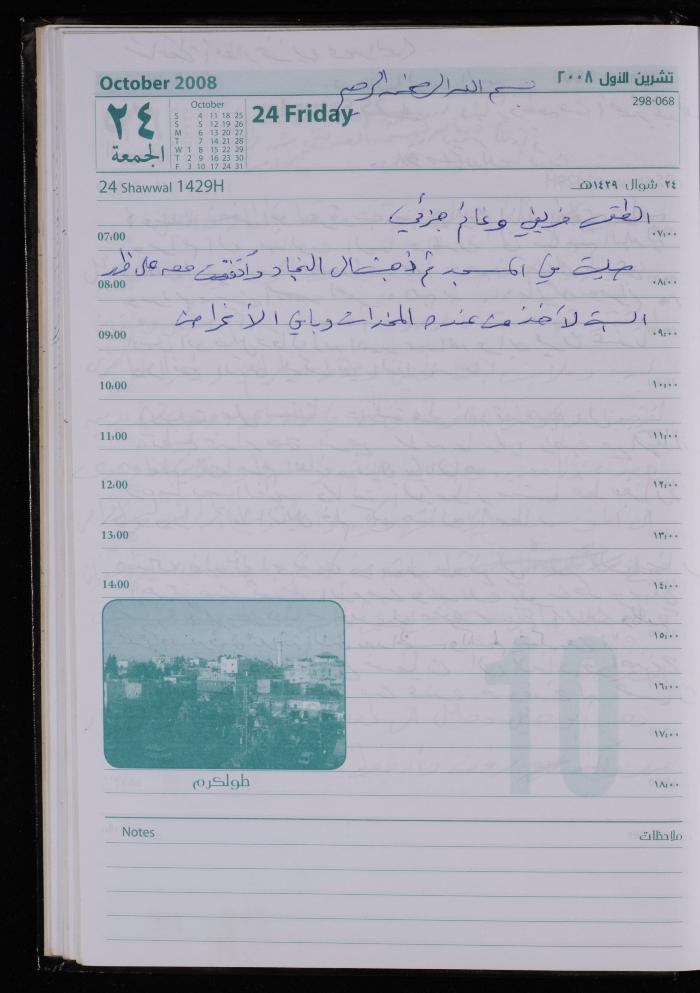 October 2008
تشرين الأول ٢٠٠٨
بسم الله الرحمن الرحيم
٢٤
الجمعة
October
S 4 11 18 25
S 5 12 19 26
M 6 13 20 27
T 7 14 21 28
W 1 8 15 22 29
T 2 9 16 23 30
F 3 10 17 24 31
24 Friday
298-068
24 Shawwal 1429H
٢٤ شوال ١٤٢٩هـ
الطقس خريفي وغائم جزئي
07:00 ٠٧:٠٠
صليت في المسجد ثم ذهبت ال النجاد وأتفقت معه على ظهر
08:00 ٠٨:٠٠
السبت لآخذ من عنده المخدات وباقي الأغراض
09:00 ٠٩:٠٠
10:00 ١٠:٠٠
11:00 ١١:٠٠
12:00 ١٢:٠٠
13:00 ١٣:٠٠
14:00 ١٤:٠٠
١٥:٠٠
10
١٦:٠٠
١٧:٠٠
طولكرم
١٨:٠٠
Notes ملاحظات